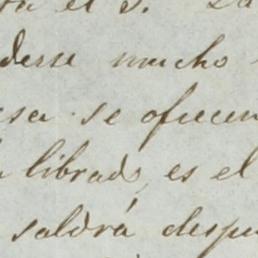 el S. La
derse mucho
se ofrecen
librado, es el
saldrá despu